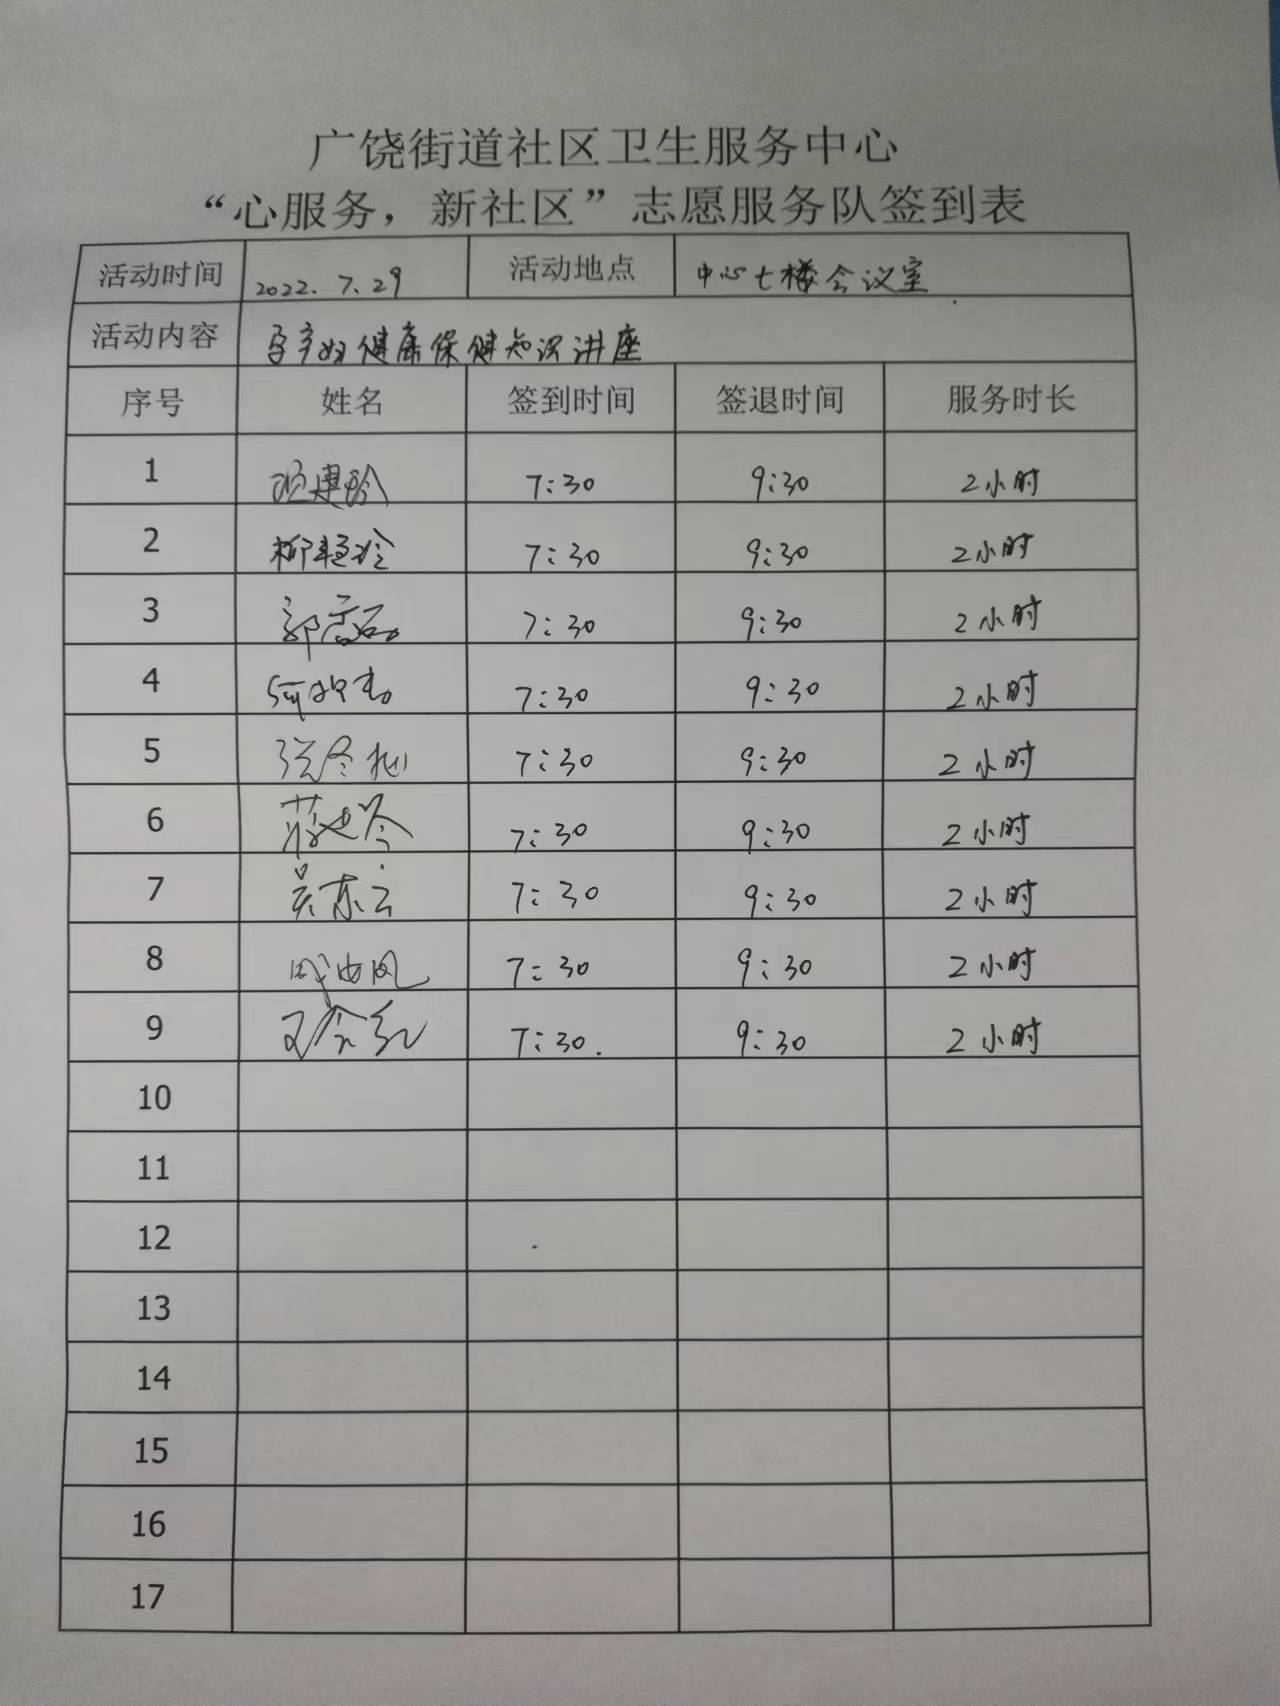 广饶街道社区卫生服务中心
“心服务，新社区”志愿服务队签到表
活动时间 2022.7.29 活动地点 中心七楼会议室
活动内容 孕产妇健康保健知识讲座
序号 姓名 签到时间 签退时间 服务时长
1 7:30 9:30 2小时
2 柳艳玲 7:30 9:30 2小时
3 7:30 9:30 2小时
4 7:30 9:30 2小时
5 7:30 9:30 2小时
6 7:30 9:30 2小时
7 吴东云 7:30 9:30 2小时
8 7:30 9:30 2小时
9 7:30. 9:30 2小时
10
11
12
13
14
15
16
17